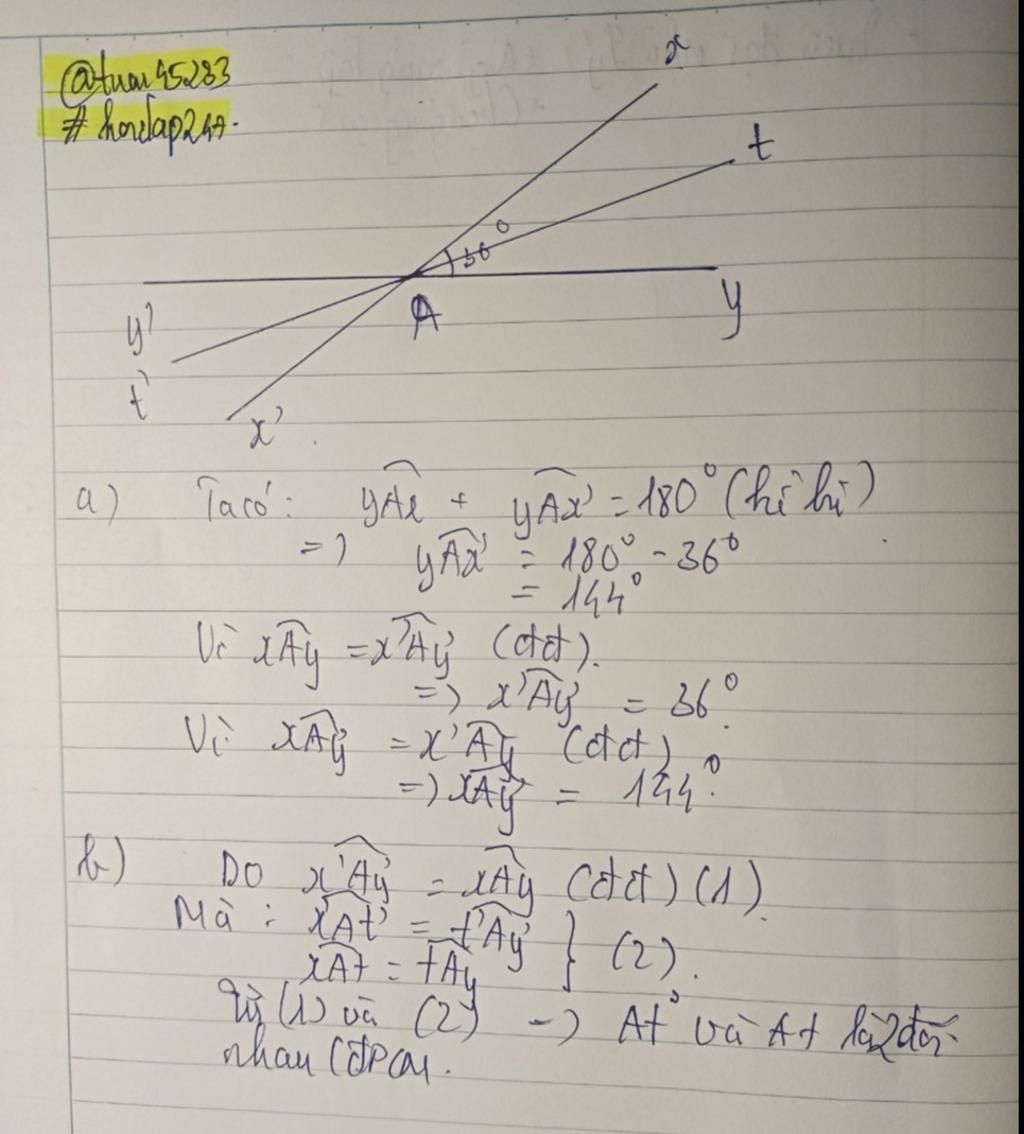 @tuan45283
#hoidap247.
x
t
36°
y'
A
y
t'
x'
a) Ta có: yAx + yAx' = 180° (hì hì)
=> yAx' = 180° - 36°
= 144°
Vì xAy = x'Ay' (đđ).
=> x'Ay' = 36°.
Vì xAy' = x'Ay (đđ)
=> xAy' = 144°.
b) Do x'Ay' = xAy (đđ) (1).
Mà: xAt' = t'Ay'
xAt = tAy } (2).
Từ (1) và (2) => At' và At là 2 đối
nhau (đpcm.